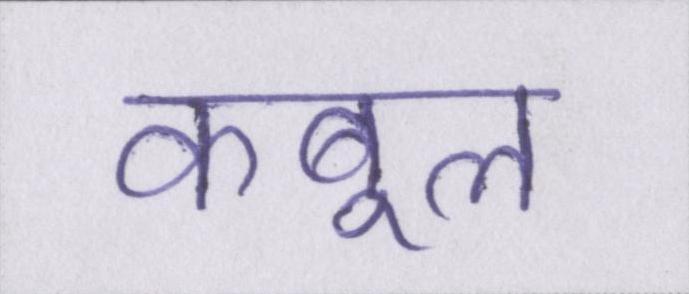 कबूल